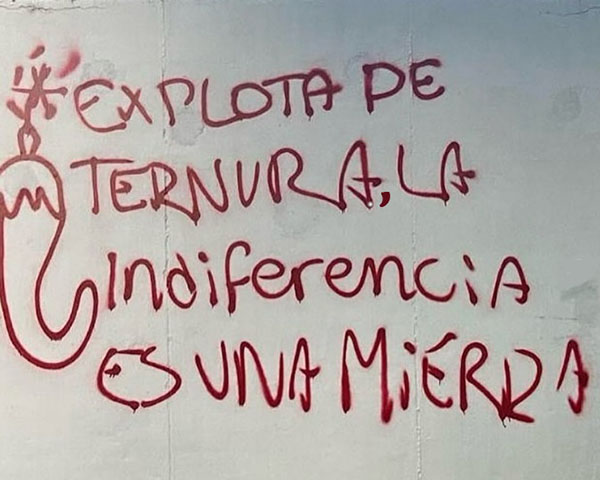 EXPLOTA DE
TERNURA, LA
indiferenciA
ES UNA MiERDA